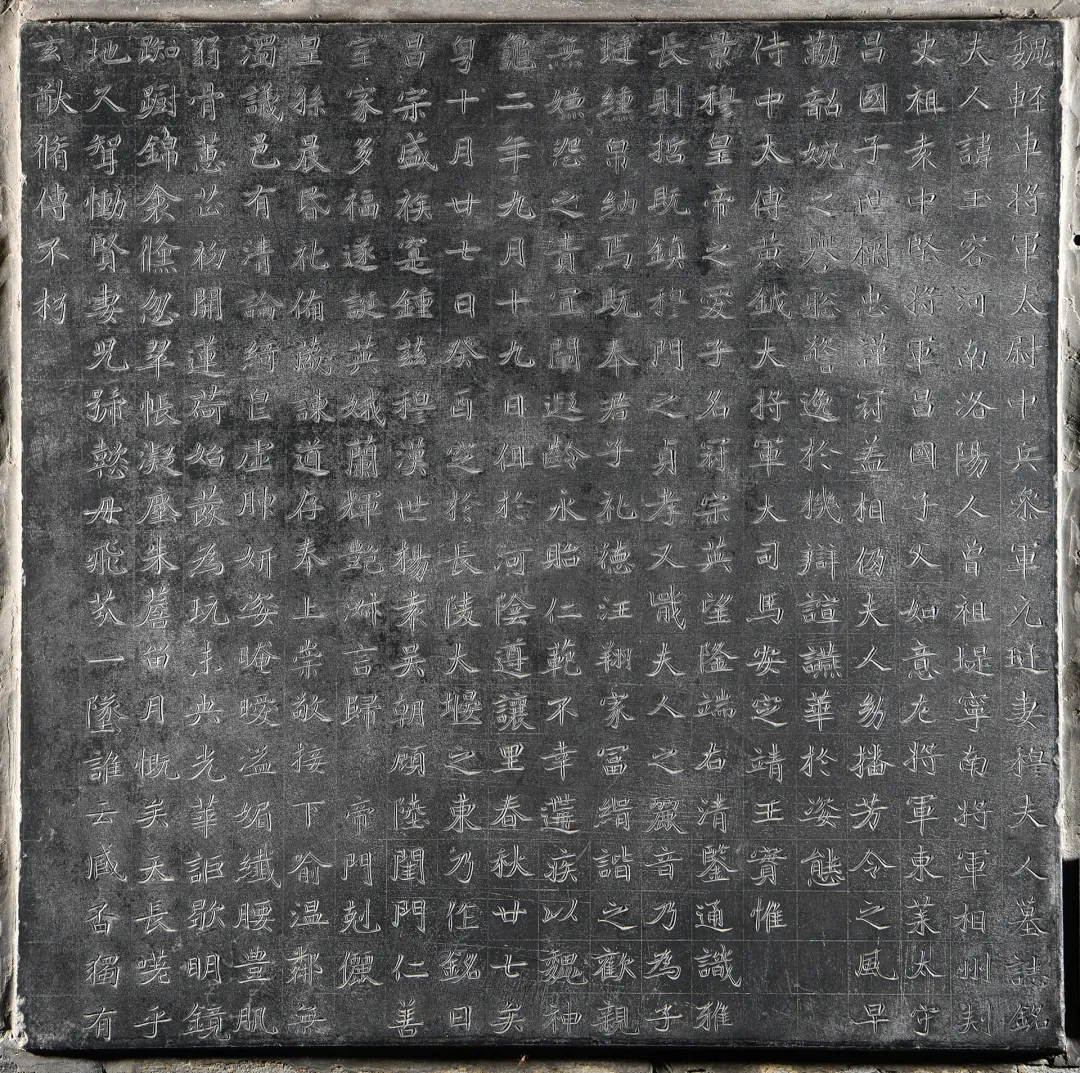 魏軽車将軍太尉中兵叅軍元珽妻穆夫人墓誌銘
夫人諱玉容河南洛陽人曽祖堤寧南将軍相州刾
史祖袁中堅将軍昌國子父如意左将軍東莱太守
昌國子世樹忠謹冠盖相仍夫人㓜播芳令之風早
勤韶婉之譽聡警逸於機辯諠讌華於姿態
侍中太傅黄鉞大将軍大司馬安定靖王寶惟
景穆皇帝之愛子名冠宗英望隆端右清鑒通識雅
長則哲既鎮穆門之貞孝又戢夫人之麗音乃為子
珽纁帛納焉既奉君子礼德汪翔家冨緝諧之歡親
無嫌怨之責宜閏遐齡永貽仁範不幸遘疾以魏神
龜二年九月十九日徂於河陰遵讓里春秋廿七矣
粤十月廿七日癸酉窆於長陵大堰之東乃作銘曰
昌宗盛族寔鍾兹穆漢世楊袁吴朝顧陸閨門仁善
室家多福遂誕英娥蘭輝艶淋言歸 帝門剋儷
皇孫晨昏礼俻蔵諫道存奉上崇敬接下俞温鄰無
濁議邑有清論綺皃虚妍姿晻曖溢媚纎腰豊肌
弱骨蕙芯初開蓮荷始發為玩未央光華詎歇明鏡
踟蹰錦衾儵忽翠帳凝塵朱簷留月慨矣天長嗟乎
地久智慟賢妻兒號懿母飛芬一墜誰云臧否獨有
玄猷脩傳不朽